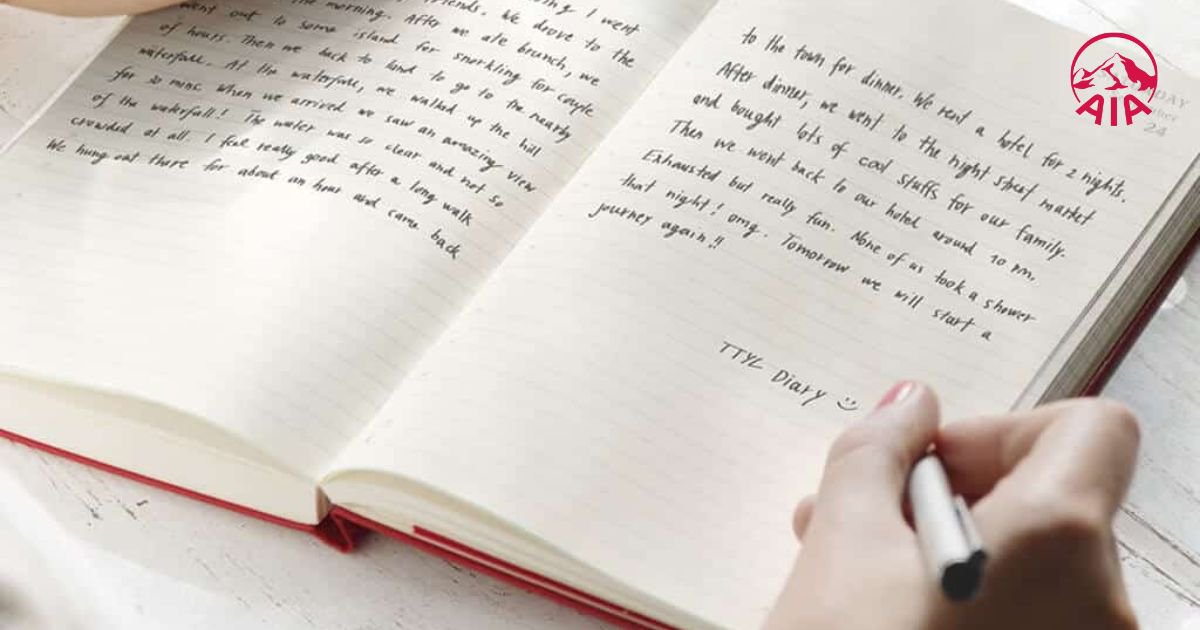 ing I went
the morning. After
friends. We drove to the
went out to some island for snorkling for couple
we ate brunch, we
of hours. Then we back to land to go to the nearby
waterfall. At the waterfall, we walked up the hill
for 30 mins. When we arrived we saw an amazing view
of the waterfall! The water was so clear and not so
crowded at all. I feel really good after a long walk
We hung out there for about an hour and came back
to the town for dinner. We rent a hotel for 2 nights.
After dinner, we went to the night street market
and bought lots of cool stuffs for our family.
Then we went back to our hotel around 10 pm.
Exhausted but really fun. None of us took a shower
that night! omg. Tomorrow we will start a
journey again!!
TTYL Diary
DAY
24
AIA